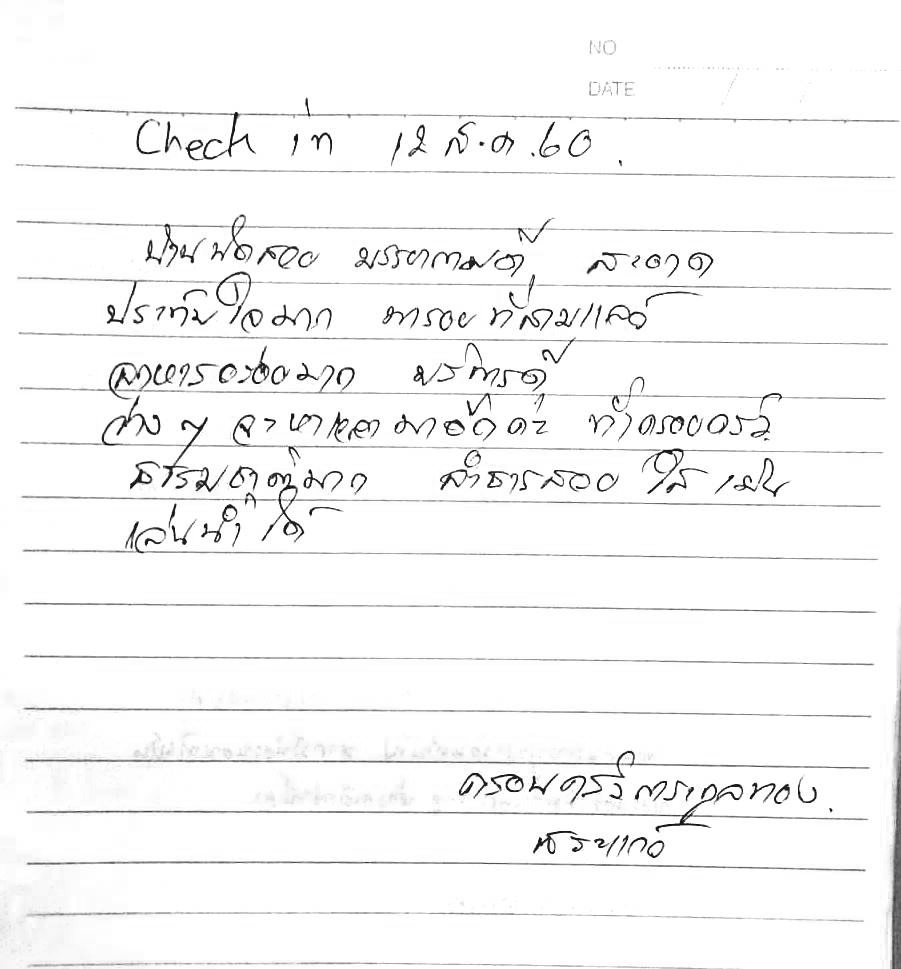 NO
DATE / /
Check in 12 ส.ค.60.
บ้านพักสวย บรรยากาศดี สะอาด
ประทับใจมาก มารอบที่สามแล้ว
อาหารอร่อยมาก บริการดี
ว่าง ๆ จะหาเวลามาอีกค่ะ ทั้งครอบครัว
ธรรมชาติมาก ลำธารสวย ใส เย็น
เล่นน้ำได้
ครอบครัว
สระแก้ว